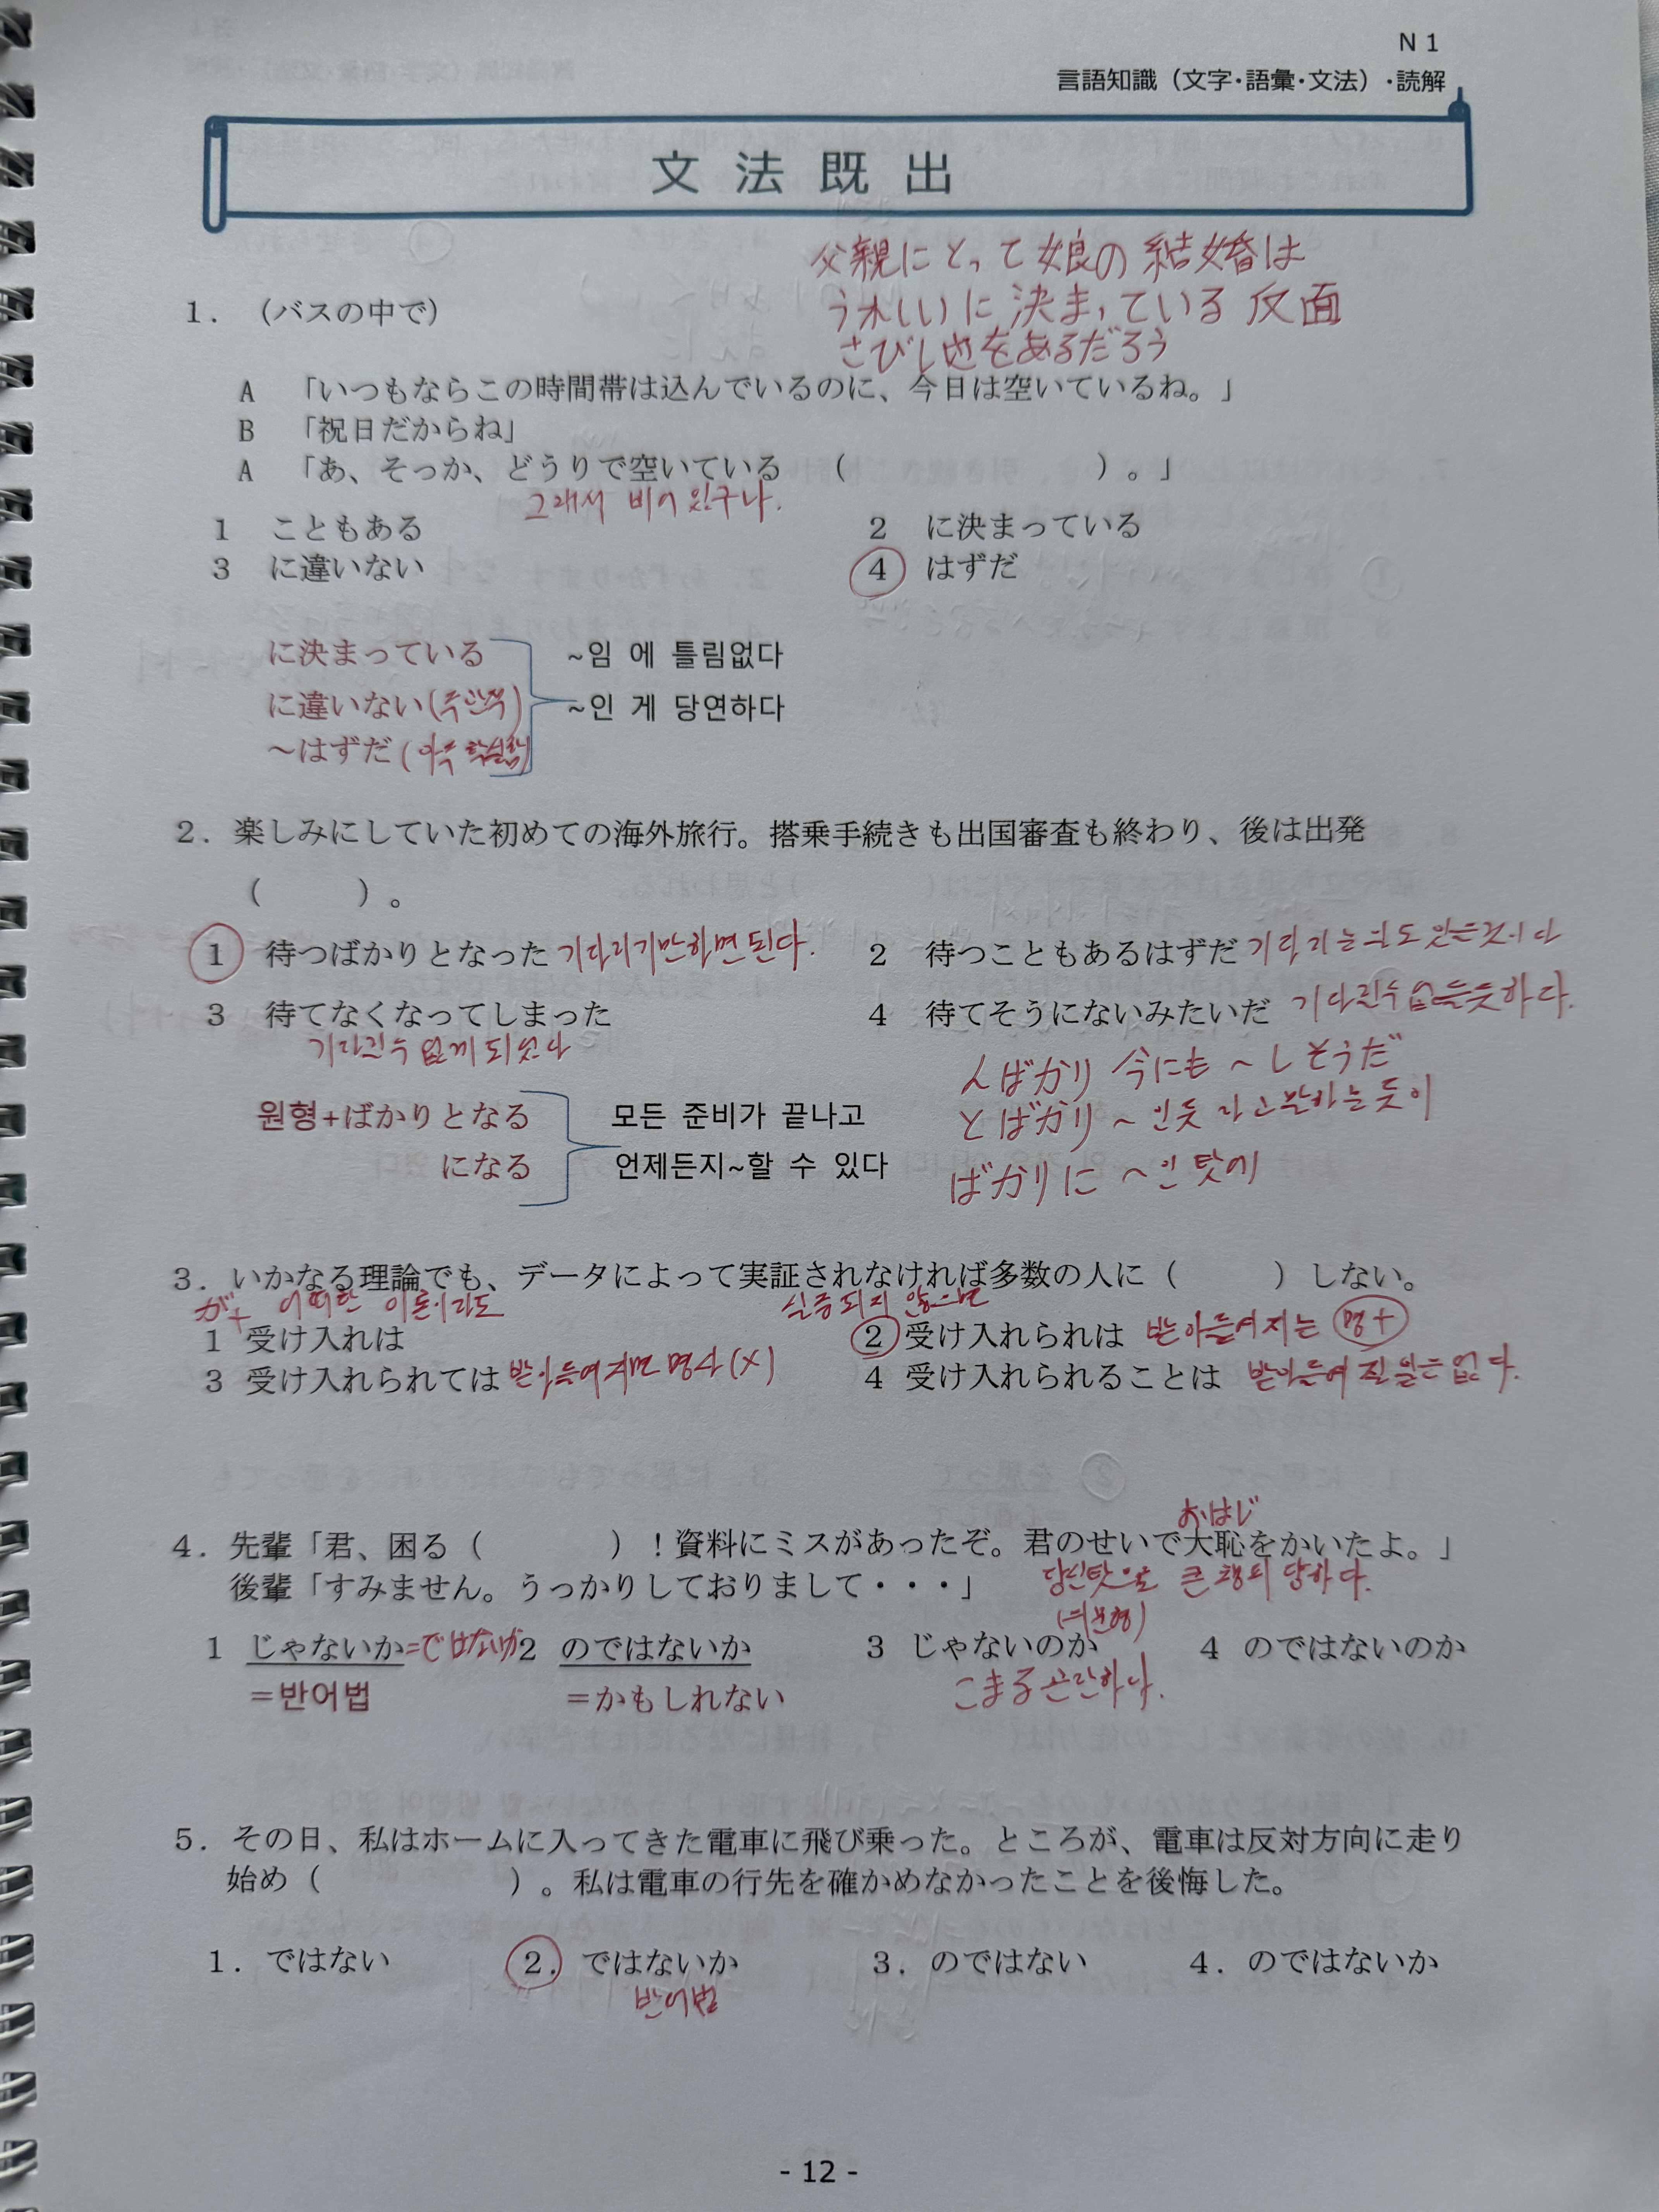 N1
言語知識（文字·語彙·文法）·読解
文法既出
父親にとって娘の結婚は
うれしいに決まっている反面
さびし也をあるだろう
1. （バスの中で）
A 「いつもならこの時間帯は込んでいるのに、今日は空いているね。」
B 「祝日だからね」
A 「あ、そっか、どうりで空いている （ ）。」
그래서 비어 있구나.
1 こともある 2 に決まっている
3 に違いない 4 はずだ
に決まっている ~임 에 틀림없다
に違いない ~인 게 당연하다
～はずだ
2. 楽しみにしていた初めての海外旅行。搭乗手続きも出国審査も終わり、後は出発
（ ）。
1 待つばかりとなった 기다리기만하면 된다. 2 待つこともあるはずだ
3 待てなくなってしまった 4 待てそうにないみたいだ 기다릴수 없을듯하다.
기다릴수 없게 되었다
んばかり 今にも ~しそうだ
원형+ばかりとなる 모든 준비가 끝나고
とばかり ~인듯 라고 말하는 듯이
になる 언제든지~할 수 있다
ばかりに ~인 탓에
3. いかなる理論でも、データによって実証されなければ多数の人に（ ）しない。
が+ 어떠한 이론이라도 실증되지 않으면
1 受け入れは 2 受け入れられは 받아들여지는 명+
3 受け入れられては 받아들여지면 명사(X) 4 受け入れられることは 받아들여 질 일은 없다.
おはじ
4. 先輩「君、困る（ ）！資料にミスがあったぞ。君のせいで大恥をかいたよ。」
後輩「すみません。うっかりしておりまして・・・」 당신탓으로 큰 챙피 당하다.
1 じゃないか=ではないか 2 のではないか 3 じゃないのか 4 のではないのか
=반어법 =かもしれない こまる 곤란하다.
5. その日、私はホームに入ってきた電車に飛び乗った。ところが、電車は反対方向に走り
始め（ ）。私は電車の行先を確かめなかったことを後悔した。
1. ではない 2. ではないか 3. のではない 4. のではないか
반어법
- 12 -